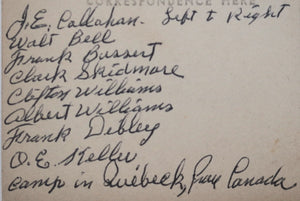 CORRESPONDENCE HERE
J.E. Callahan. Left to Right
Walt Bell
Frank Bussert
Clark Skidmore
Clifton Williams
Albert Williams
Frank Debley
O.E. Keller
Camp in Quebeck, Canada